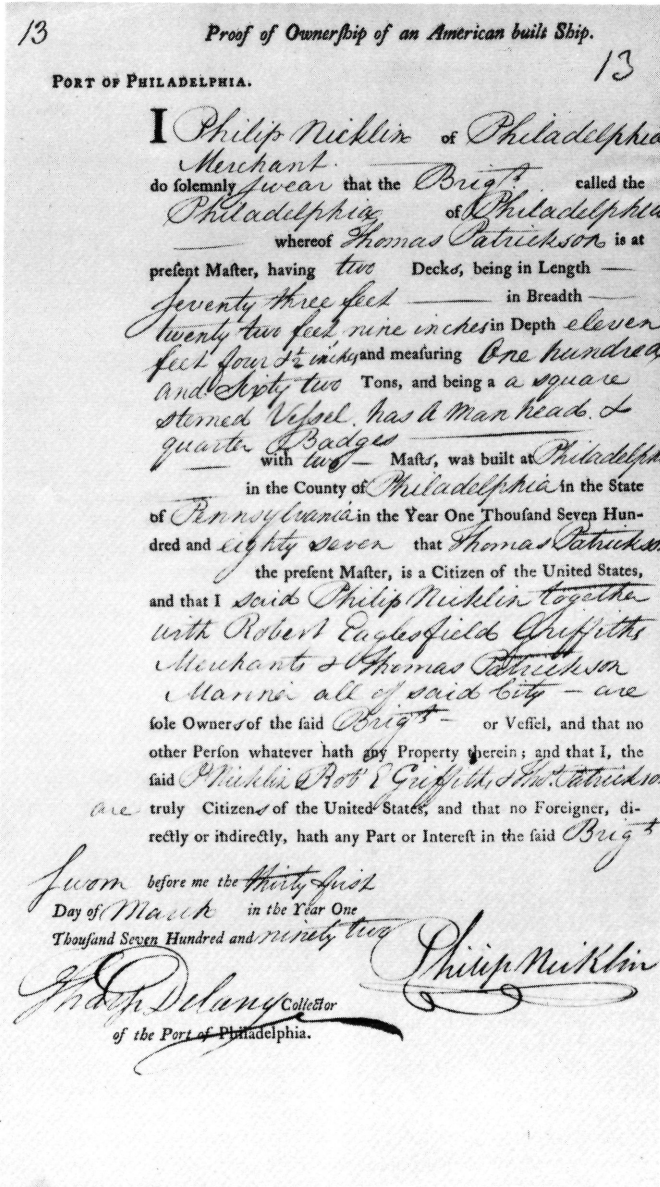 13
Proof of Ownerſhip of an American built Ship.
13
PORT OF PHILADELPHIA.
I Philip Nicklin of Philadelphia
Merchant
do ſolemnly swear that the Brigt. called the
Philadelphia of Philadelphia
whereof Thomas Patrickson is at
preſent Maſter, having two Decks, being in Length —
Seventy three feet — in Breadth —
twenty two feet nine inches in Depth eleven
feet four & ½ inches and meaſuring One hundred
and Sixty two Tons, and being a a square
sterned Vessel has a man head &
quarter Badges —
— with two — Maſts, was built at Philadelph
in the County of Philadelphia in the State
of Pennsylvania in the Year One Thouſand Seven Hun-
dred and eighty seven that Thomas Patrickson
the preſent Maſter, is a Citizen of the United States,
and that I said Philip Nicklin together
with Robert Eaglesfield Griffiths
Merchants & Thomas Patrickson
Mariner all of said City — are
ſole Owners of the ſaid Brigt — or Veſſel, and that no
other Perſon whatever hath any Property therein; and that I, the
ſaid P Nicklin Robt E Griffiths & Thos. Patrickson
are truly Citizens of the United States, and that no Foreigner, di-
rectly or indirectly, hath any Part or Intereſt in the ſaid Brigt
Sworn before me the thirty first
Day of March in the Year One
Thouſand Seven Hundred and ninety two
Philip Nicklin
Sharp Delany Collector
of the Port of Philadelphia.